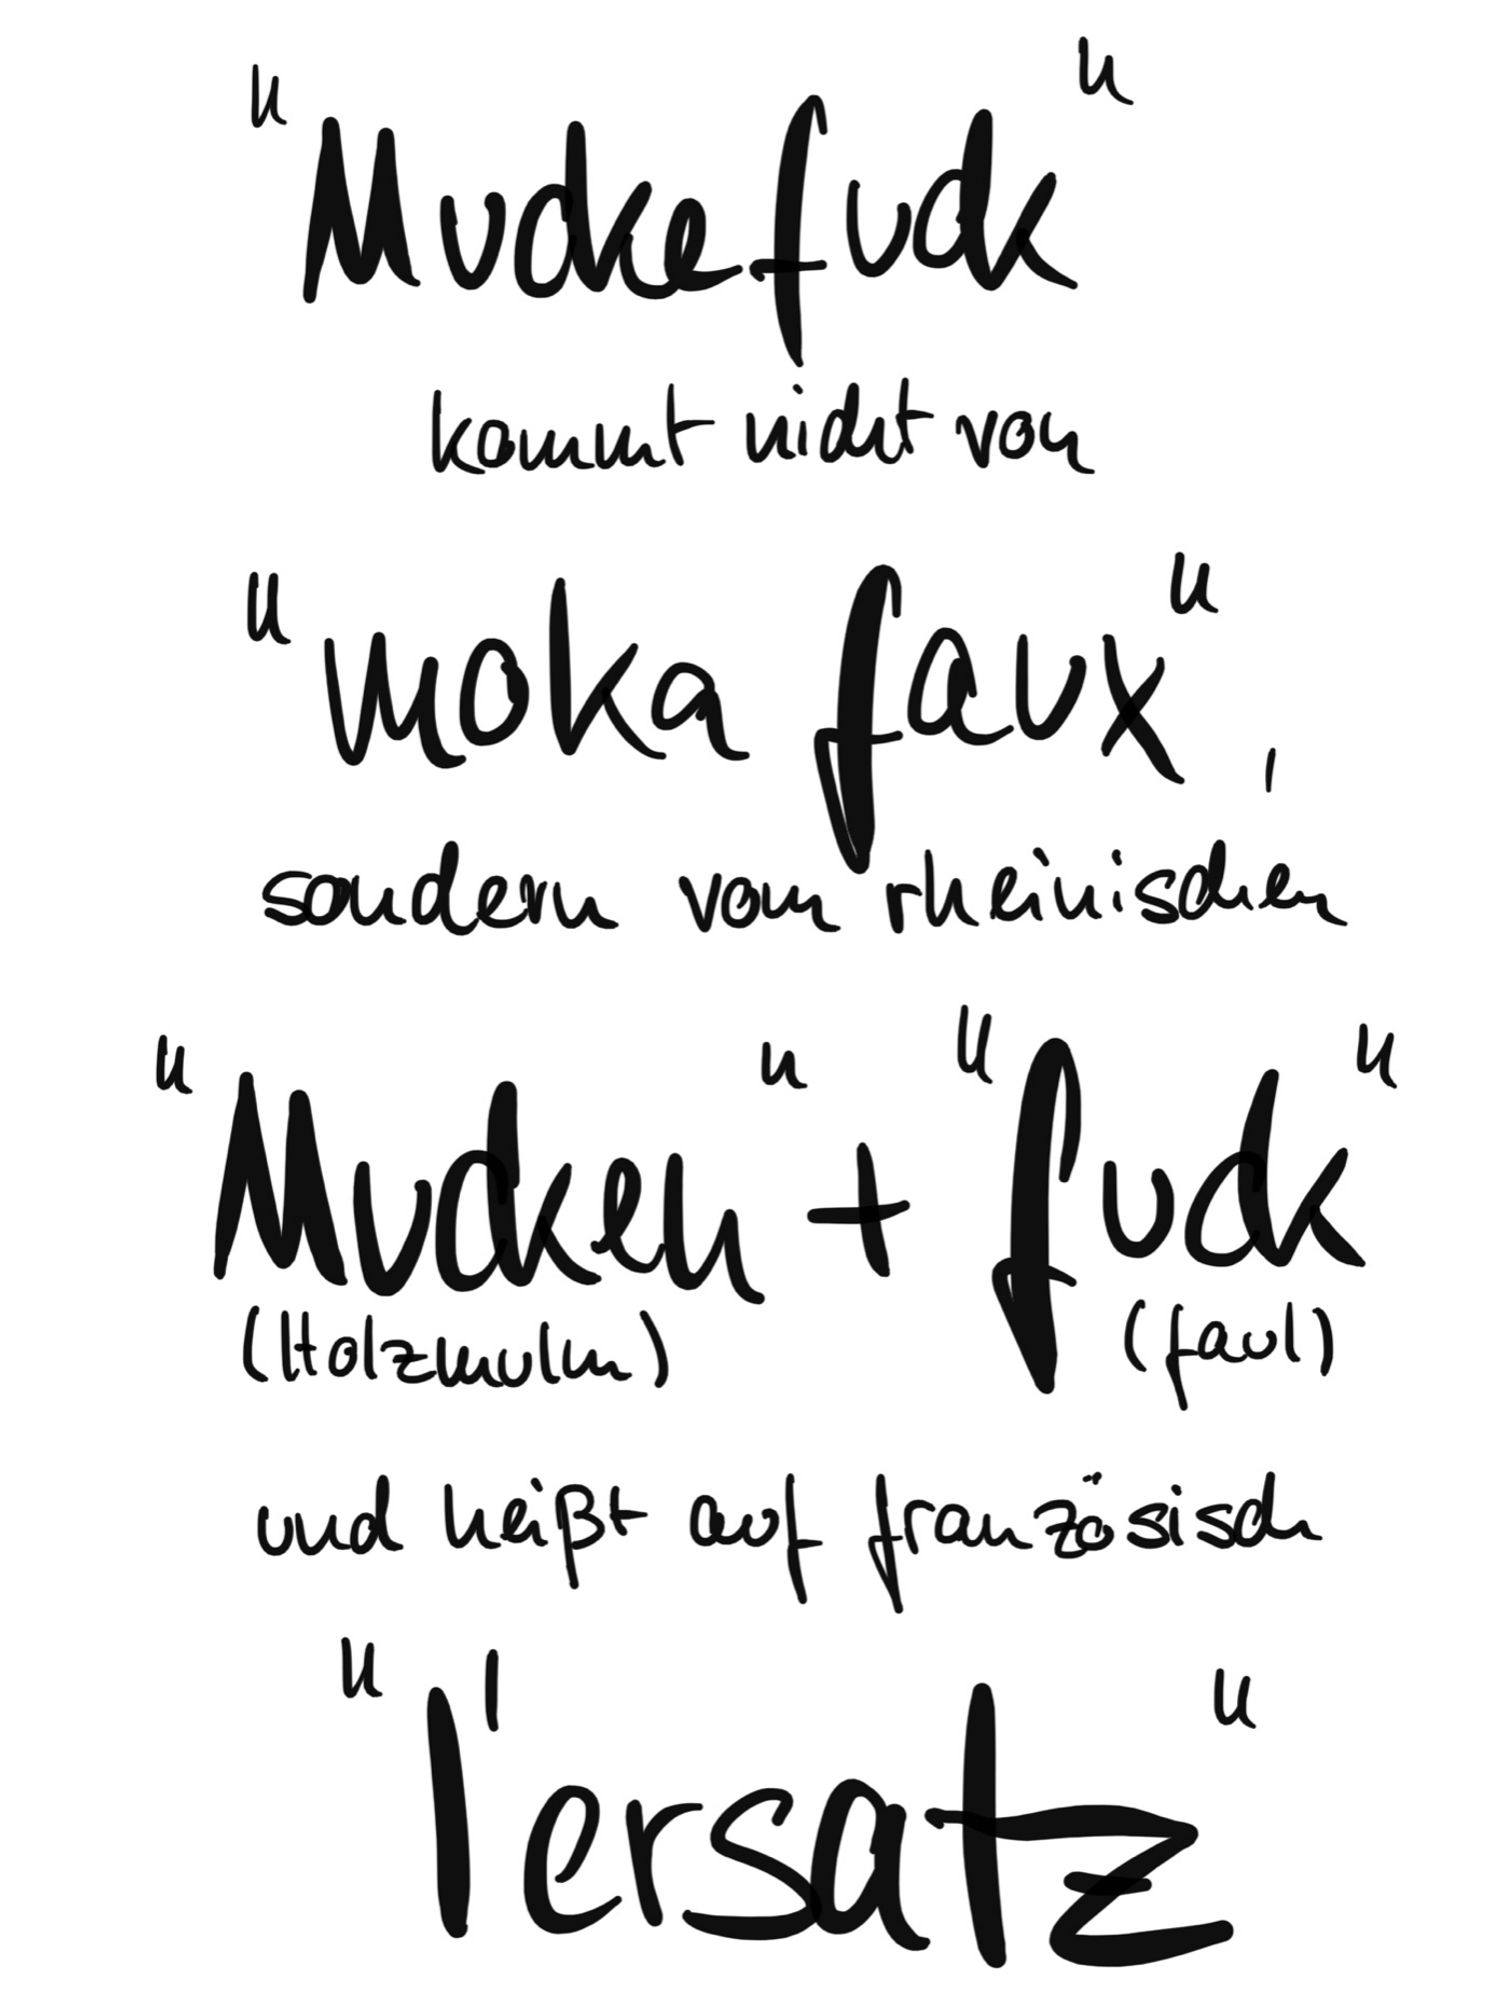 "Muckefuck"
kommt nicht von
"moka faux",
sondern vom rheinischen
"Mucken" + "fuck"
(Holzmulm) (faul)
und heißt auf französisch
"l'ersatz"